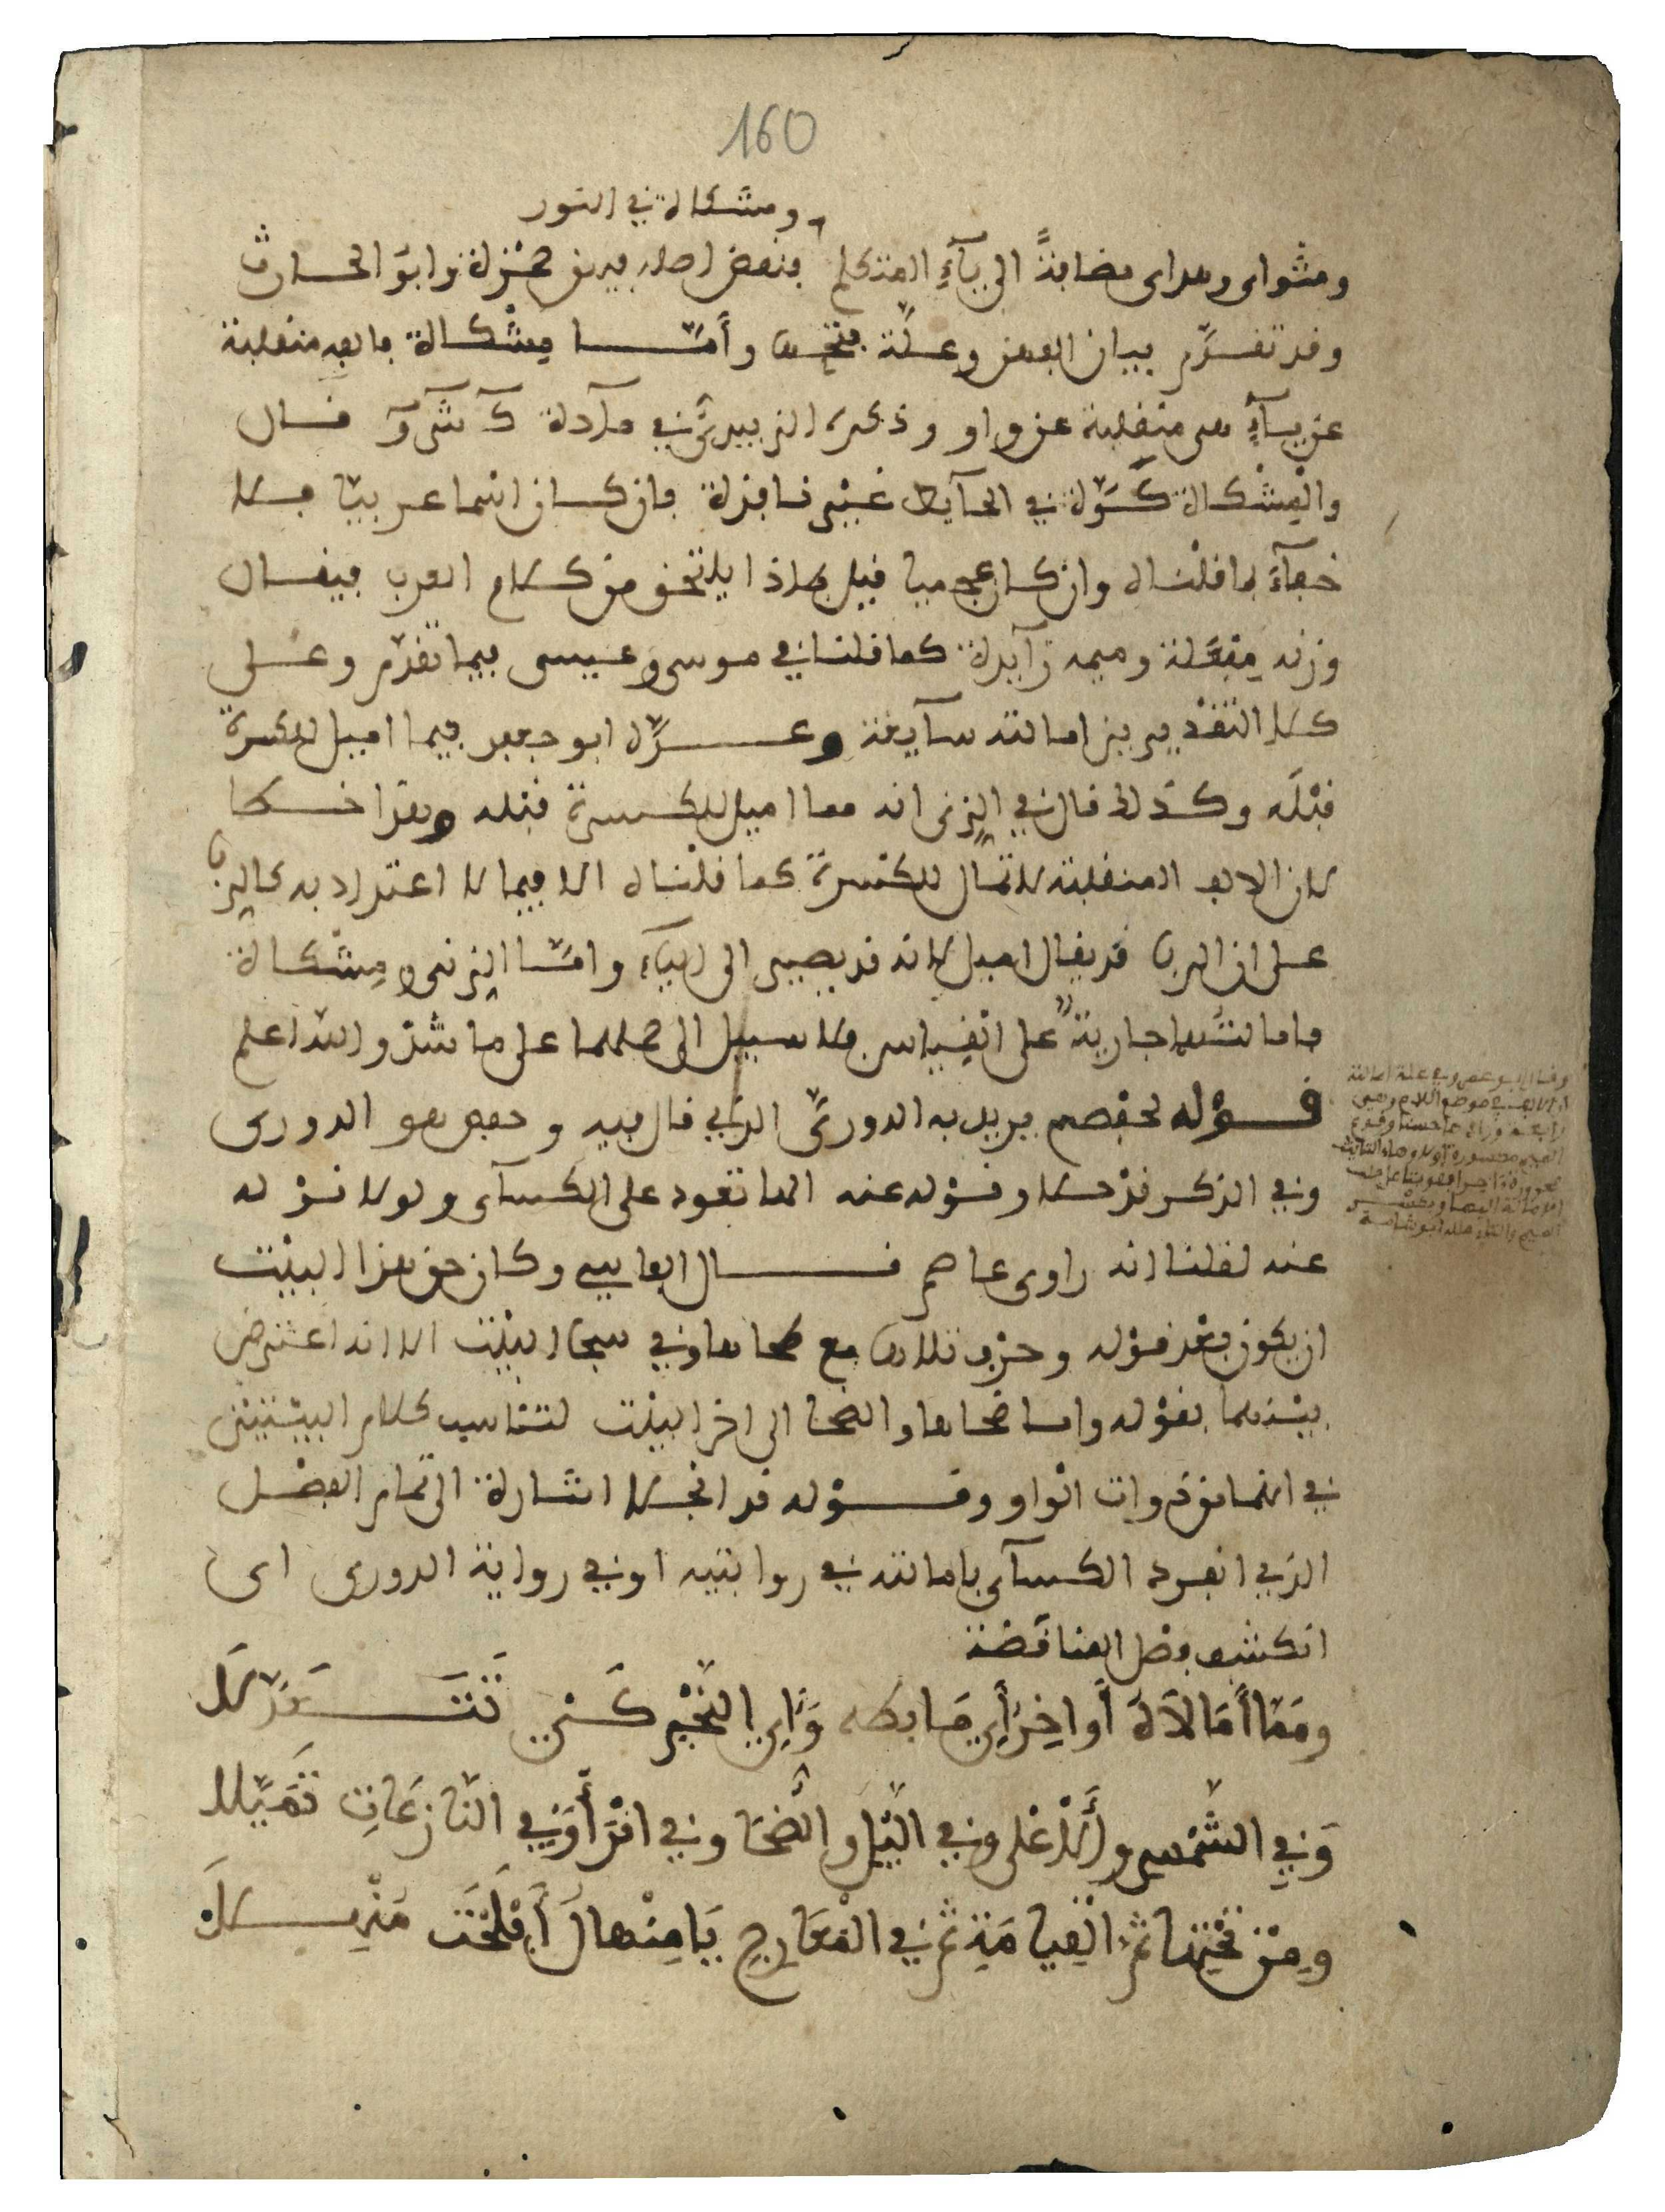 160
ومشكاة في النور
ومثواى وهداى مضافةً الى يآءِ المتكلم فنقض اصله فيهن حمْزة وابو الحارث
وقد تقدَّم بيان البعض وعلّة فتحها وأمّا مِشْكاة فالفه منقلبة
عن يآءٍ هى منقلبة عن واو وذكره الزبيدىّ في مآدة ك ش و قال
والْمِشْكاة كَوّة في الحآيط غيْر نافذة فان كان اسما عربيّا فلا
خفآءَ لما قلْناه وان كان عجميا فيل هاذا يلتحق من كلام العرب فيقال
وزنه مِفْعَلة وميمه زآيدة كما قلنا في موسى وعيسى فيما تقدّم وعلى
كلا التقْديرين امالته سآيغة وعدَّه ابو جعفر فيما اميل للكسرة
قبْلَه وكذلك قال في الزنى انه مما اميل للكسرة قبله وهذا خطا
لان الالف المنقلبة لا تمال للكسْرة كما قلْناه الا فيما لا اعتداد به كالربا
على ان الربا قد يقال اميل لانه قد يصير الى اليآء وامّا الزنى ومِشْكاة
فامالتُهما جارية على الْقِياس فلا سبيل الى حملهما على ما شذّ والله اعلم
قوْله لحفْصهم يريد به الدورىّ الذي قال فيه وحفص هو الدورى
وفي الذكر قدْ خلا وقوْله عنه الها تعود على الكسآى ولولا قوْله
عنه لقلنا انه راوى عاصم قال الفاسي وكان حق هذا البيْت
ان يكون بعْد قوْله وحرْف تلاها مع طحاها وفي سجا البيْت الا انه اعْترض
بيْنهما بقوْله واما ضحاها والضحا الى اخر البيْت لتناسب كلام البيْتيْن
في انهما منْ ذوات الْواو وقوْله قد انجلا اشارة الى تمام الفصْل
الذي انفرد الكسآى بامالته في روايتيه او في رواية الدورى اى
انكشف فصْل المناقضة
ومَمّا أَمَالَاهُ أَواخِرُ آيِ مَا بطه وَآيِ النّجْمِ كَيْ تَتَعَدّلَا
وَفِي الشّمْسِ والَاعْلى وفي اللّيْلِ والضُّحَا وفي اقْرَأْ وَفِي النّازِعَاتِ تَمَيّلا
وِمِنْ تَحْتِهَا ثُمّ الْقِيَامَةِ ثُمّ فِي الْمَعَارِجِ يَا مِنْهالُ أَفْلَحْتَ مُنْهِلَا
وقال ابو عمرو في علة امالته